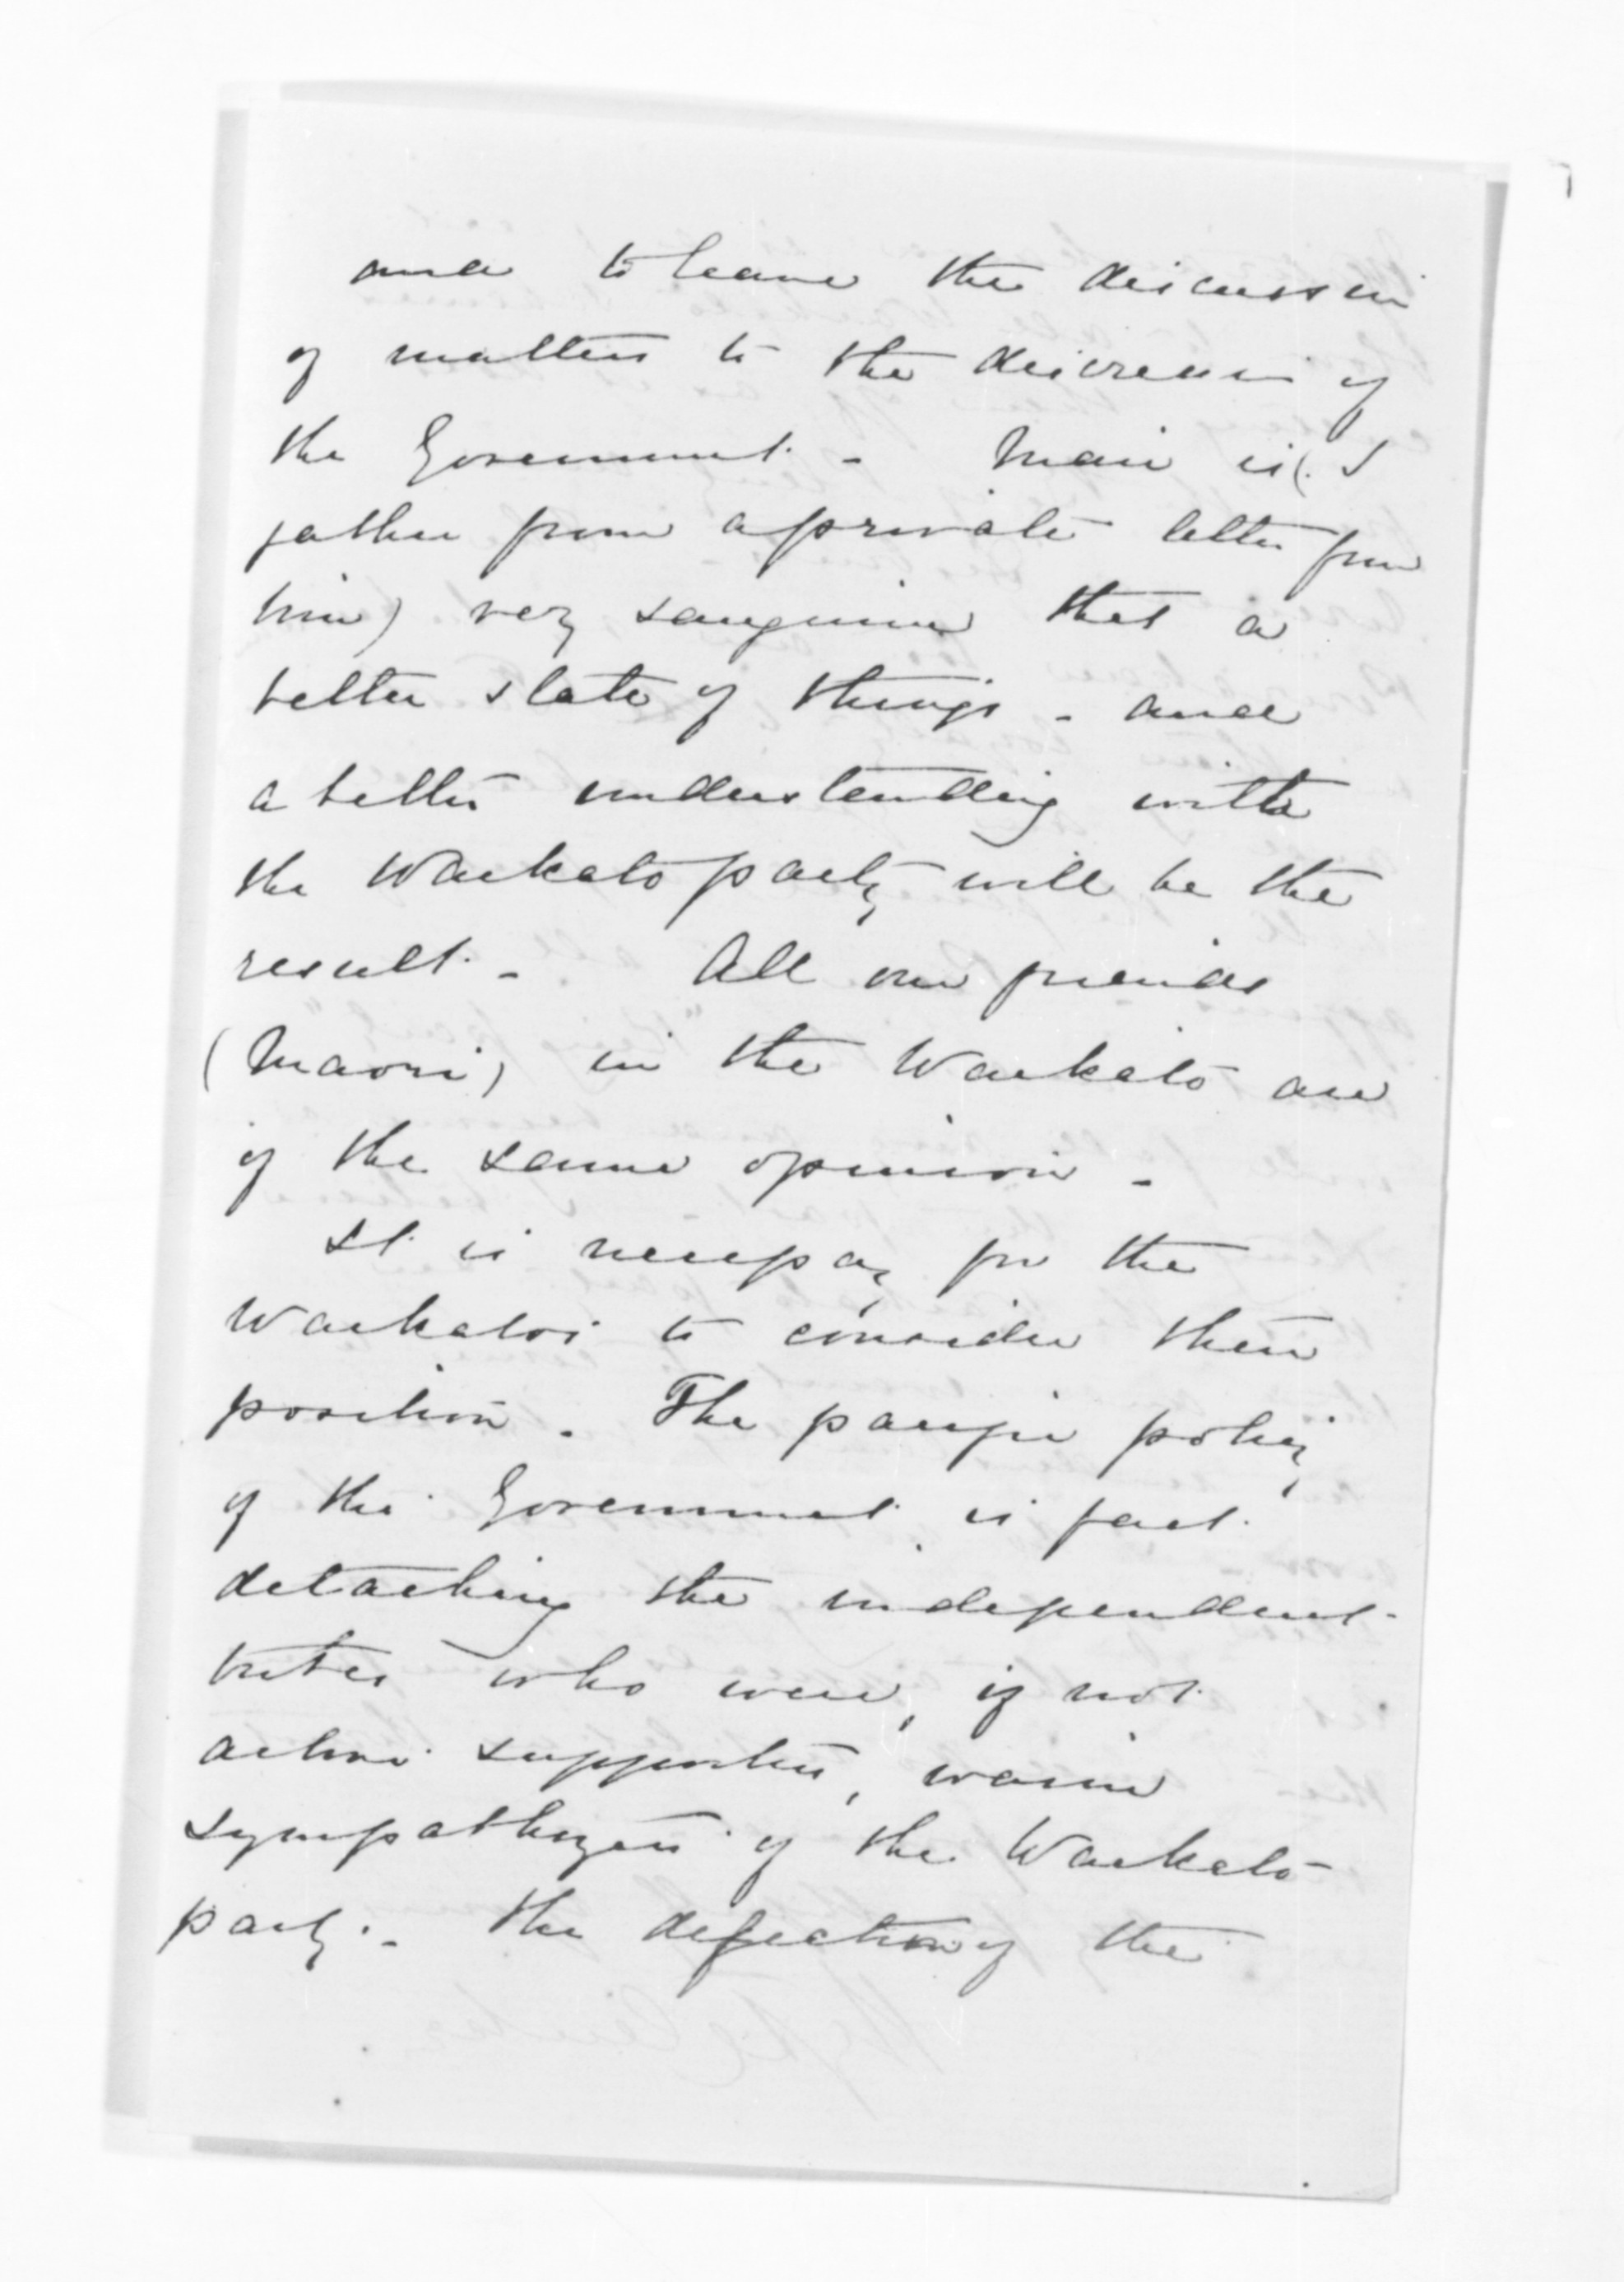 and to leave the discussion
of matters to the discretion of
the Government - Mair is (. I
gather from a private letter from
him) very sanguine that a
better state of things - and
a better understanding with
the Waikato party will be the
result. - All our friends
(Maori) in the Waikato are
of the same opinion -
It is necessary for the
Waikatos to consider their
position. The pacific policy
of the Government is fast
detaching the independent
tribes who were, if not
active supporters, warm
sympathizers of the Waikato
party. - The defection of the